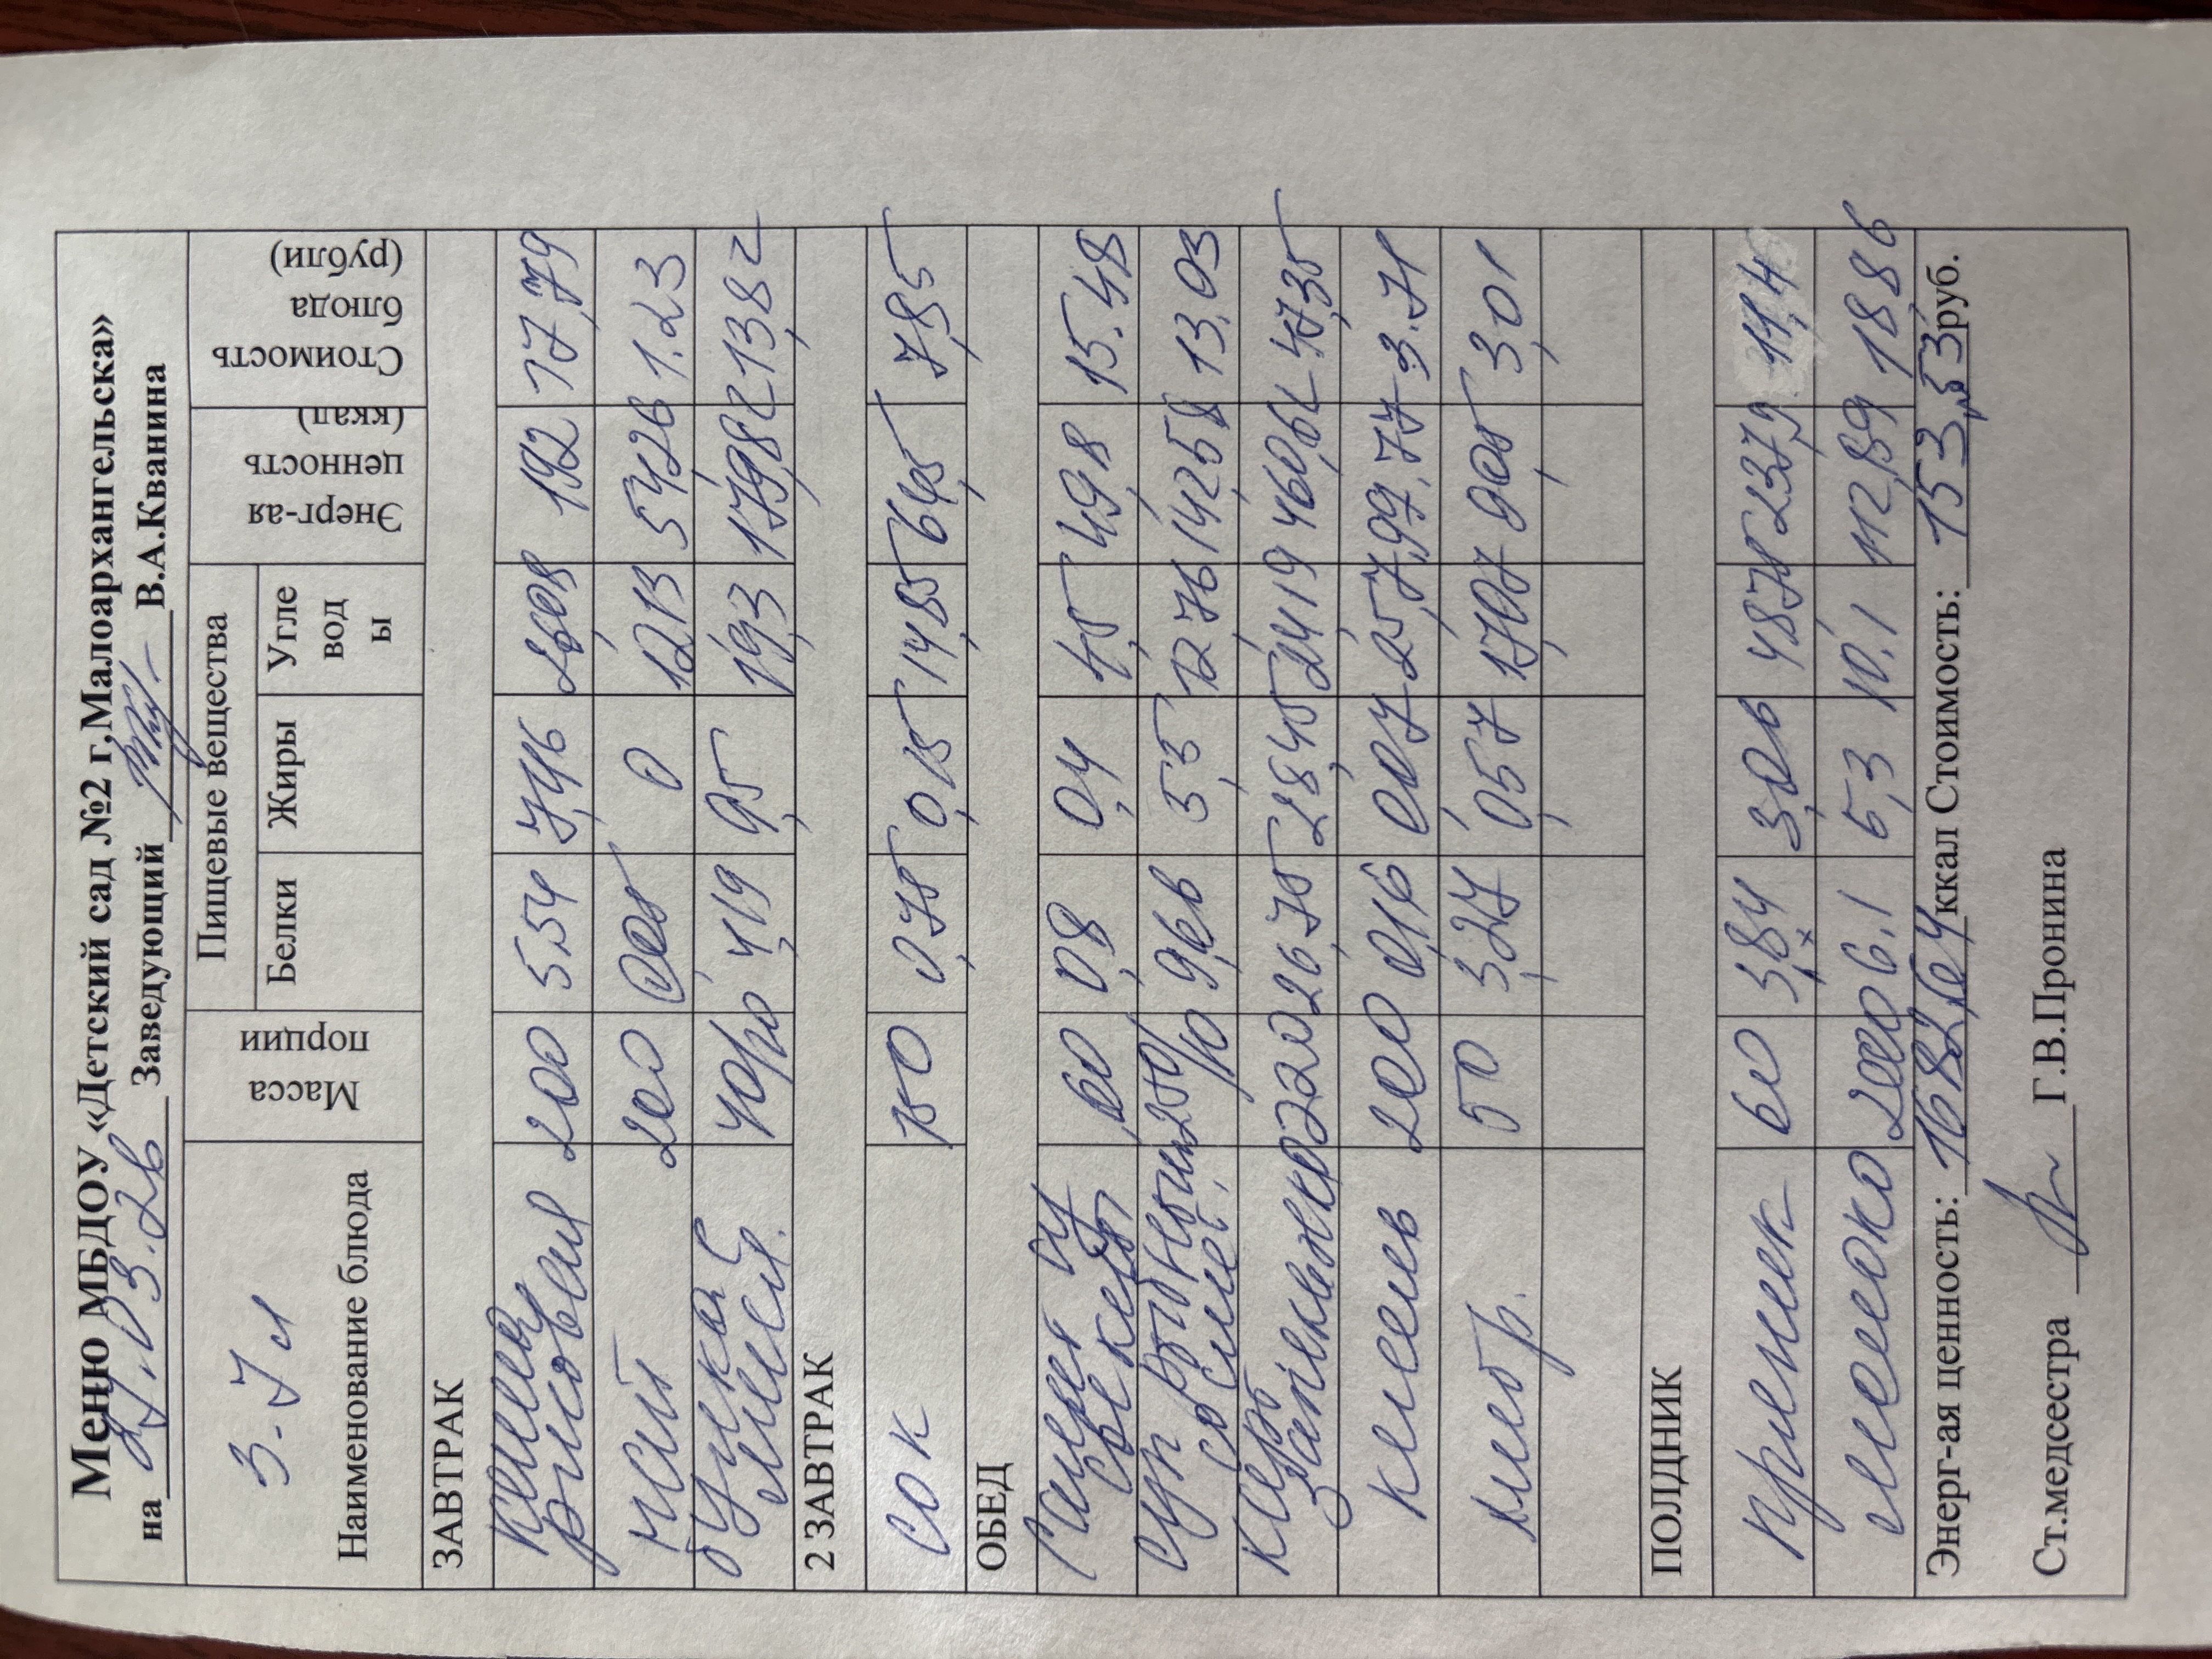 Меню МБДОУ «Детский сад №2 г.Малоархангельска»
на 27.03.26 Заведующий В.А.Кванина
3-7 л
Наименование блюда Масса порции Пищевые вещества Энерг-ая ценность (ккал) Стоимость блюда (рубли)
Белки Жиры Углеводы
ЗАВТРАК
Каша рисовая 200 5.54 7,46 26,08 192 17,79
Чай 200 0,05 0 12,13 54,26 1.23
Булка с масл. 40/10 4,19 9,5 19,3 179,82 13,82
2 ЗАВТРАК
сок 150 0,75 0,15 14,85 64,5 7,85
ОБЕД
из свеклы 60 0,8 0,4 4,5 49,8 15.48
Суп со смет. 250/10 9,66 5,5 12,76 142,58 13,03
Карт запеканка 220 26,75 28,45 24,19 460,62 47,35
кисель 200 0,16 0,07 25,7 99,77 3.71
хлеб р. 50 3,27 0,57 17,07 90,5 3,01
ПОЛДНИК
Пряник 60 3,84 3,06 48,75 237,9 11,4
Молоко 200 6,1 5,3 10,1 112,89 18,86
Энерг-ая ценность: 1682,64 ккал Стоимость: 153,53 руб.
Ст.медсестра Г.В.Пронина